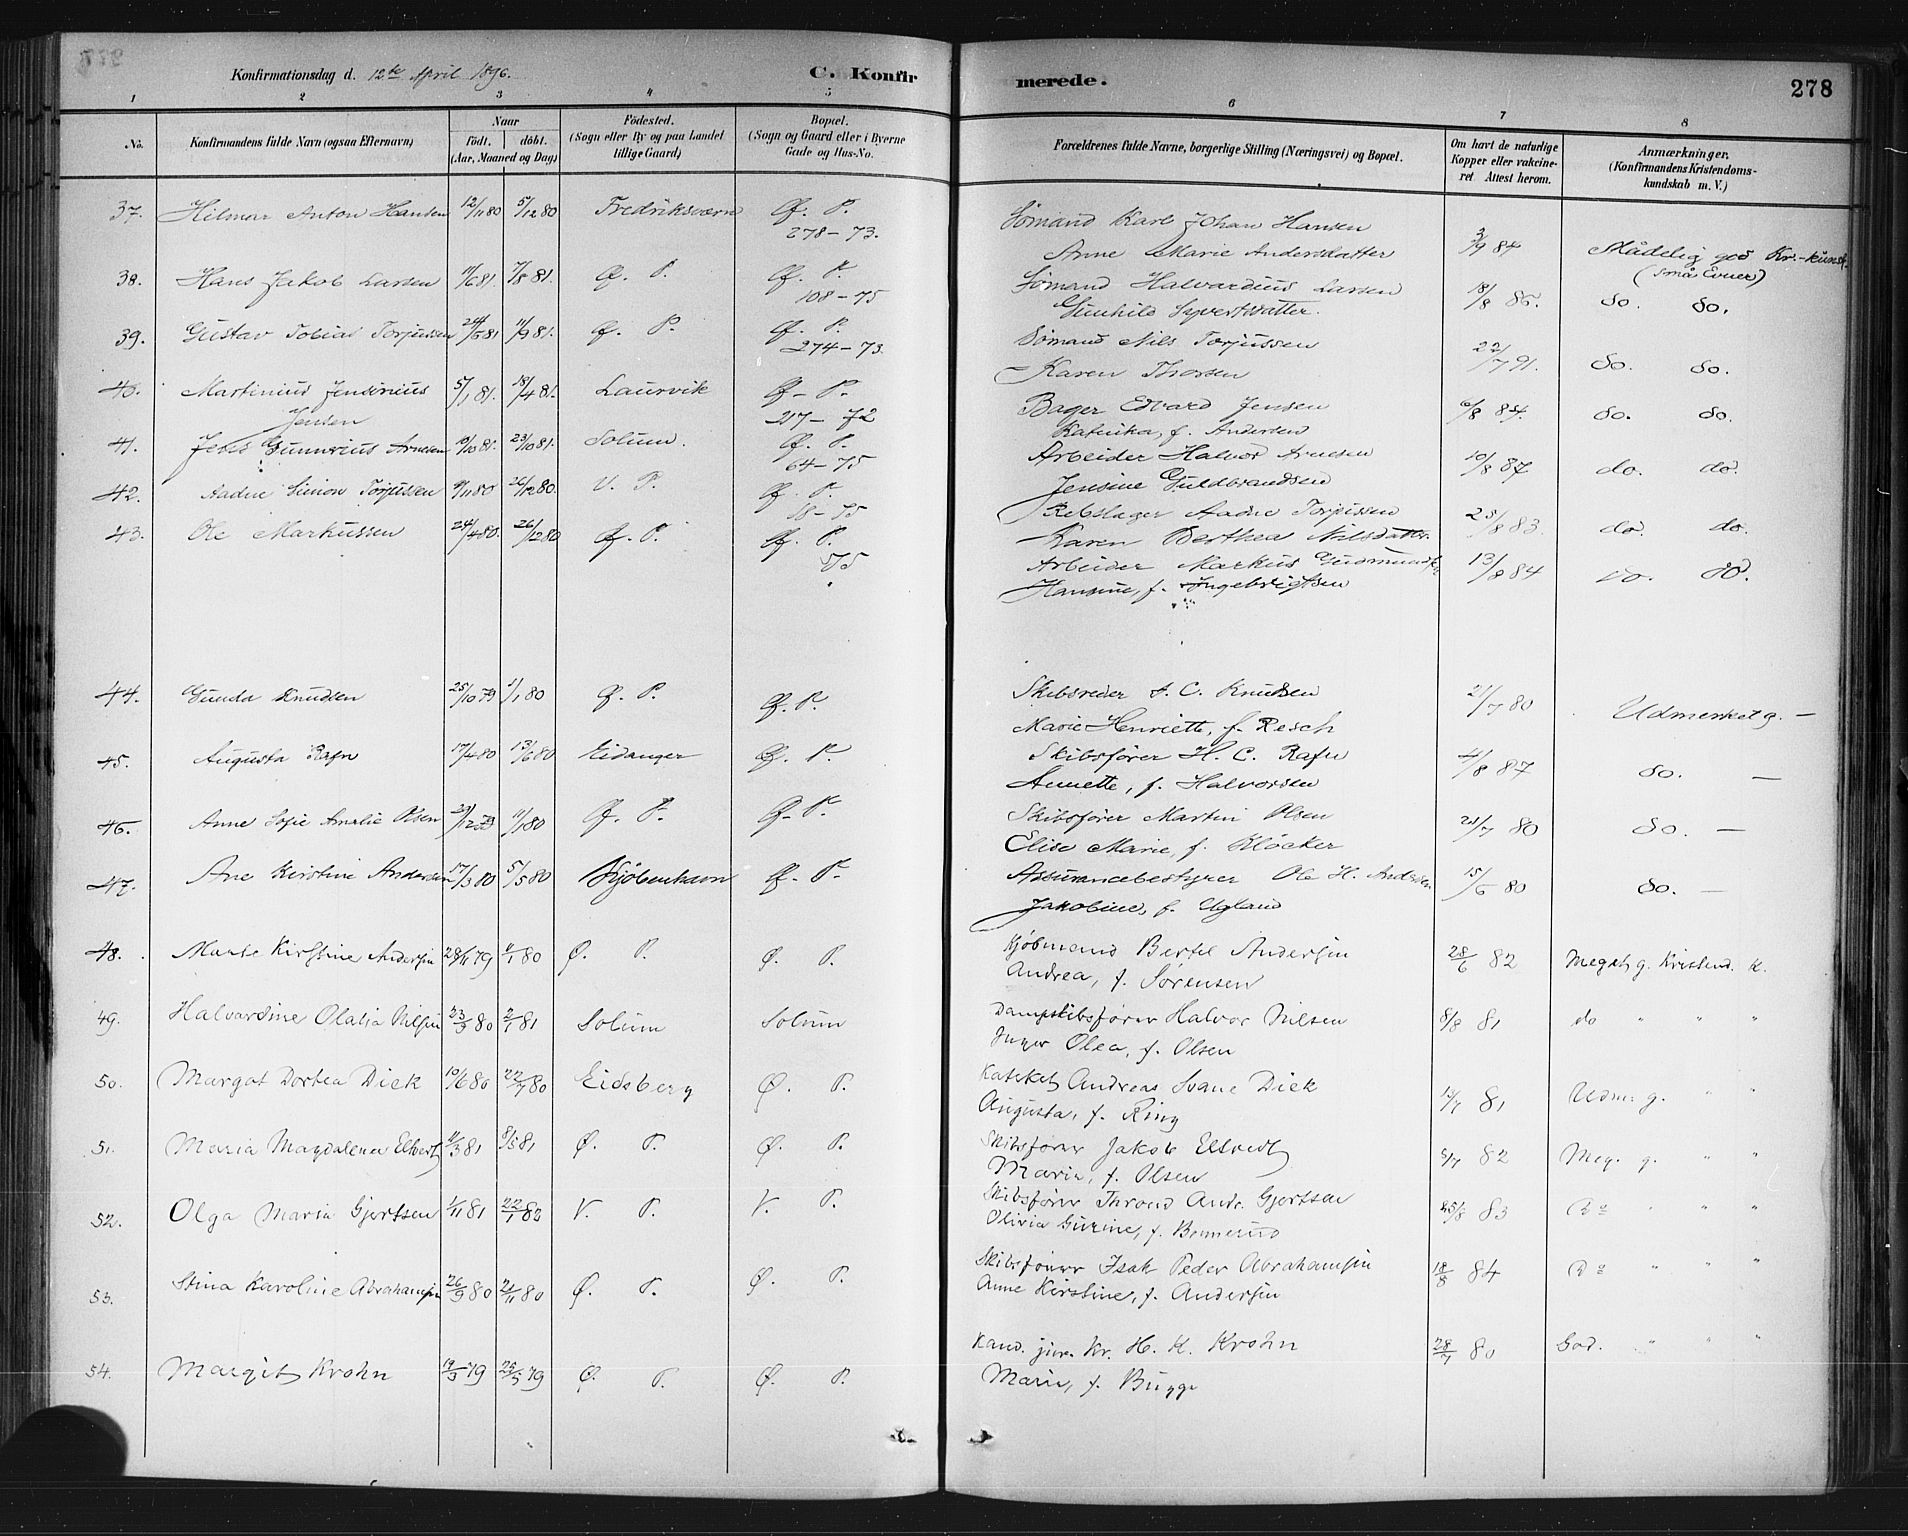 Konfirmationsdag d. 12te April 1896. C. Konfirmerede. 278
1 2 3 4 5 6 7 8
No. Konfirmandens fulde Navn (ogsaa Efternavn) Naar født. døbt. (Aar, Maaned og Dag) Födested. (Sogn eller By og paa Landet tillige Gaard) Bopæl. (Sogn og Gaard eller i Byerne Gade og Hus-No. Forældrenes fulde Navne, borgerlige Stilling (Næringsvei) og Bopæl. Om havt de naturlige Kopper eller vakcineret Attest herom. Anmærkninger. (Konfirmandens Kristendomskundskab m. V.)
37. Hilmar Anton Hansen 12/11 80 5/12 80 Fredriksværn Ø. P. 278-73. Sømand Karl Johan Hansen
Anne Marie Andersdatter 3/9 84 Mådelig god Kr.-kundsk. (små Evner)
38. Hans Jakob Larsen 11/6 81. 7/8 81. Ø. P. Ø. P. 108-75 Sømand Halvardius Larsen
Gunhild Syvertsdatter. 18/8 86. do. do.
39. Gustav Tobias Torjussen 24/5 81 11/9 81. Ø. P. Ø. P. 274-73. Sømand Nils Torjussen
Karen Thorsen 22/7 91. do. do.
40. Martinius Jensinius Jensen 5/1 81. 18/4 81. Laurvik Ø. P. 217-72 Bager Edvard Jensen
Katinka, f. Andersen 6/8 84. do. do.
41. Jens Gunnerius Arnesen 10/10 81. 23/10 81. Solum. Ø. P. 64-75 Arbeider Halvor Arnesen
Jensine Guldbrandsen 10/8 87 do. do.
42. Aadne Simon Torjussen 9/11 80 26/12 80. V. P. Ø. P. 18-75 Rebslager Aadne Torjussen
Karen Berthea Nilsdatter. 25/8 83. do. do.
43. Ole Markussen 24/4 80. 26/12 80 Ø. P. Ø. P. 75 Arbeider Markus Gudmunds.
Hansine, f. Ingebrigtsen 13/8 84 do. do.
44. Gunda Knudsen 25/10 79 1/1 80 Ø. P. Ø. P. Skibsreder J. C. Knudsen
Marie Henriette, f. Resch 21/7 80 Udmerket g. —
45. Augusta Rafn 17/4 80 13/6 80 Eidanger Ø. P. Skibsfører H. C. Rafn
Annette, f. Halvorsen 4/8 87 do. —
46. Anne Sofie Amalie Olsen 29/12 79 11/1 80 Ø. P. Ø. P. Skibsfører Martin Olsen
Elise Marie, f. Kløcker 21/7 80 do. —
47. Ane Kirstine Andersen 17/3 80 5/5 80 Kjøbenhavn Ø. P. Assurancebestyrer Ole H. Andersen
Jakobine, f. Ugland 15/6 80 do. —
48. Marte Kirstine Andersen 28/11 79 4/1 80 Ø. P. Ø. P. Kjøbmand Bertel Andersen
Andrea, f. Sørensen 28/6 82 Meget g. Kristend. K.
49. Halvardine Olalia Nilsen 23/9 80 2/1 81 Solum Solum Dampskibsfører Halvor Nilsen
Inger Olea, f. Olsen 8/8 81 do " " "
50. Margat Dortea Dick 10/6 80 22/7 80 Eidsberg Ø. P. Kateket Andreas Svane Dick
Augusta, f. Ring 15/7 81 Udm. g. " "
51. Maria Magdalena Ellvedt 11/3 81 8/5 81 Ø. P. Ø. P. Skibsfører Jakob Ellvedt
Maria, f. Olsen 5/7 82 Meg. g. " "
52. Olga Maria Gjertsen 1/11 81 22/1 82 V. P. V. P. Skibsfører Thrond Andr. Gjertsen
Olivia Gurine, f. 25/8 83 Do " " "
53. Stina Karoline Abrahamsen 26/9 80 21/11 80 Ø. P. Ø. P. Skibsfører Isak Peder Abrahamsen
Anne Kirstine, f. Andersen 18/8 84 Do " " "
54. Margit Krohn 19/3 79 25/5 79 Ø. P. Ø. P. Kand. jur. Kr. H. K. Krohn
Marie, f. Bugge 28/7 80 God. " " "